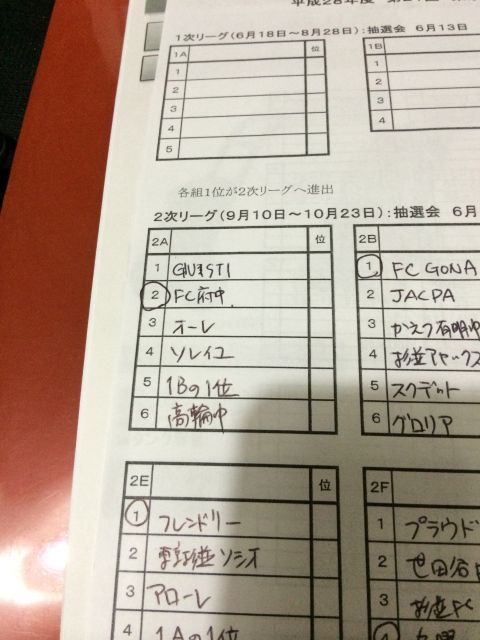 平成28年度 第21回
1次リーグ(6月18日～8月28日):抽選会 6月13日
1A 位
1
2
3
4
5
1B
1
2
3
4
各組1位が2次リーグへ進出
2次リーグ(9月10日～10月23日):抽選会 6月
2A 位
1 GIUSTI
2 FC府中
3 オーレ
4 ソレイユ
5 1Bの1位
6 高輪中
2B
1 FC GONA
2 JACPA
3 かえつ有明中
4 杉並アヤックス
5 スクデット
6 グロリア
2E 位
1 フレンドリー
2 ソシオ
3 アローレ
4 1Aの1位
2F
1 プラウド
2 世田谷
3 杉並FC
4